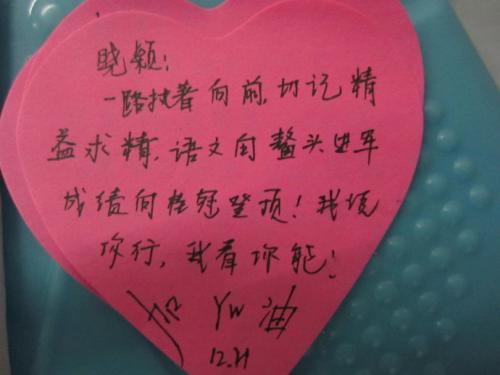 晓颖:
一路执着向前,切记精
益求精,语文向鳌头进军
成绩向桂冠登顶!我说
你行,我看你能!
YW
12.21